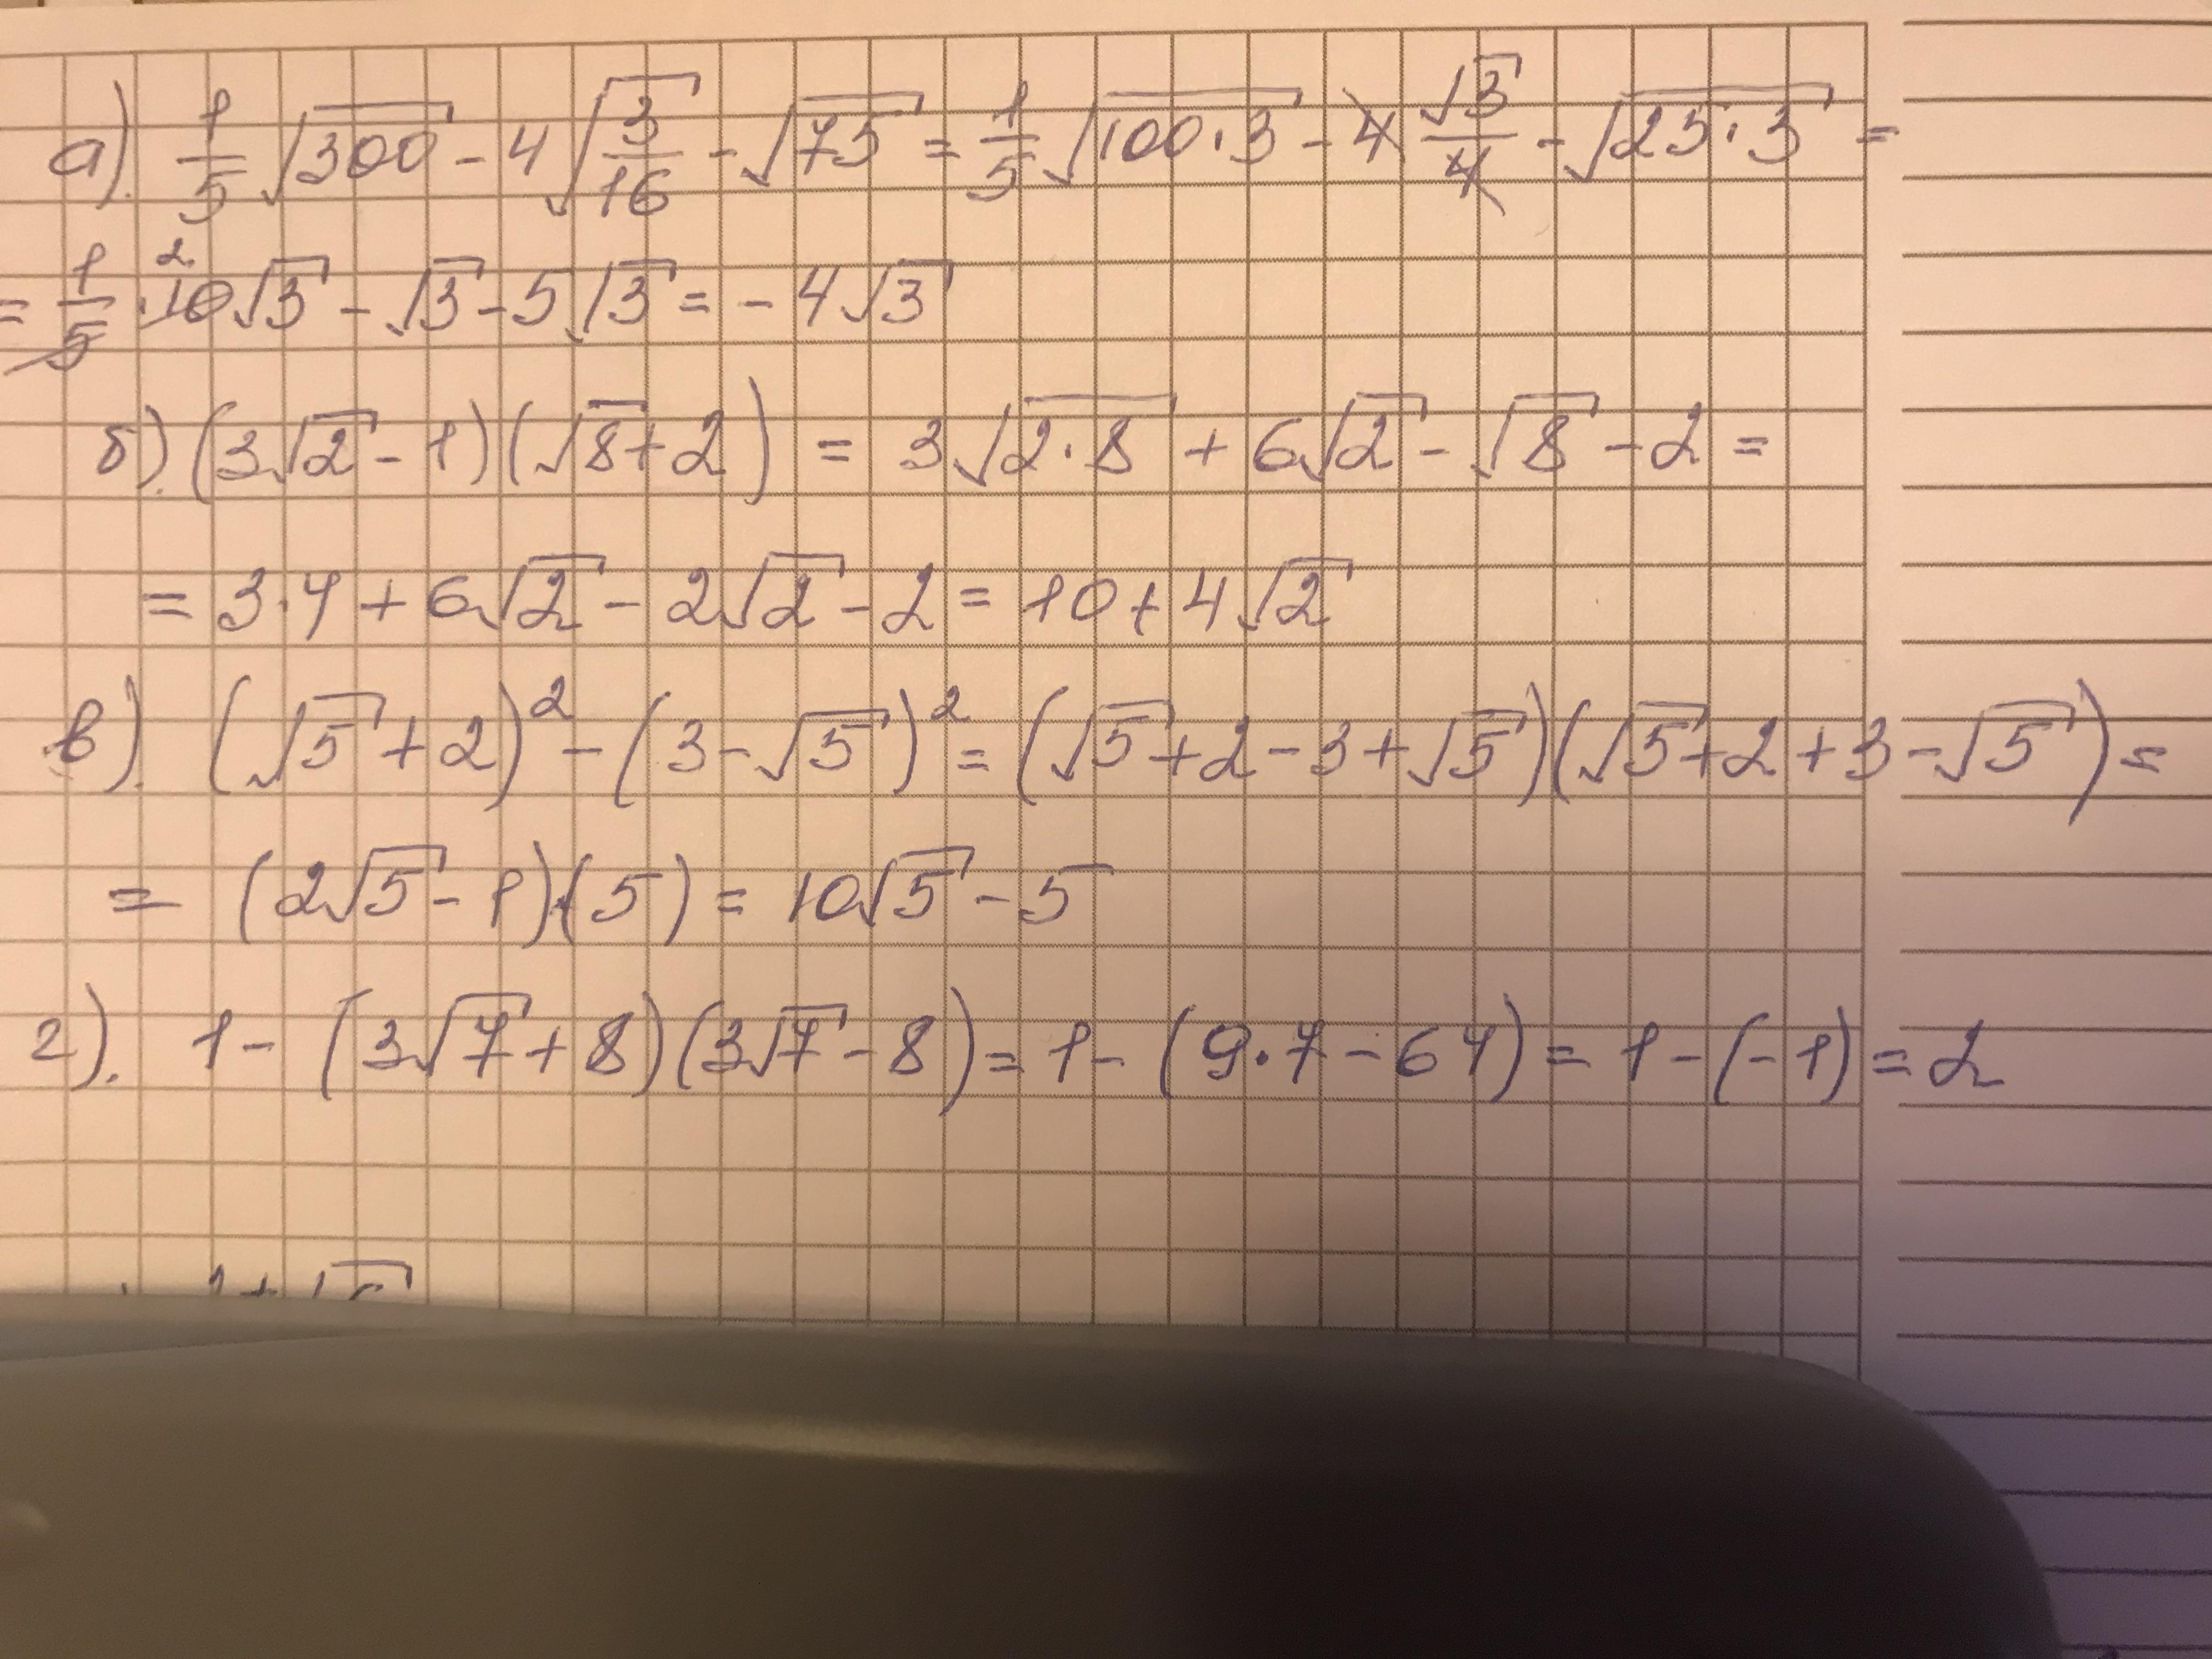 а). 1/5 √300 - 4√(3/16) - √75 = 1/5 √(100·3) - 4 √3/4 - √(25·3) =
= 1/5 · 10 2 √3 - √3 - 5√3 = - 4√3
б). (3√2 - 1)(√8 + 2) = 3√(2·8) + 6√2 - √8 - 2 =
= 3·4 + 6√2 - 2√2 - 2 = 10 + 4√2
в). (√5 + 2)² - (3 - √5)² = (√5 + 2 - 3 + √5)(√5 + 2 + 3 - √5) =
= (2√5 - 1)·(5) = 10√5 - 5
г). 1 - (3√7 + 8)(3√7 - 8) = 1 - (9·7 - 64) = 1 - (-1) = 2